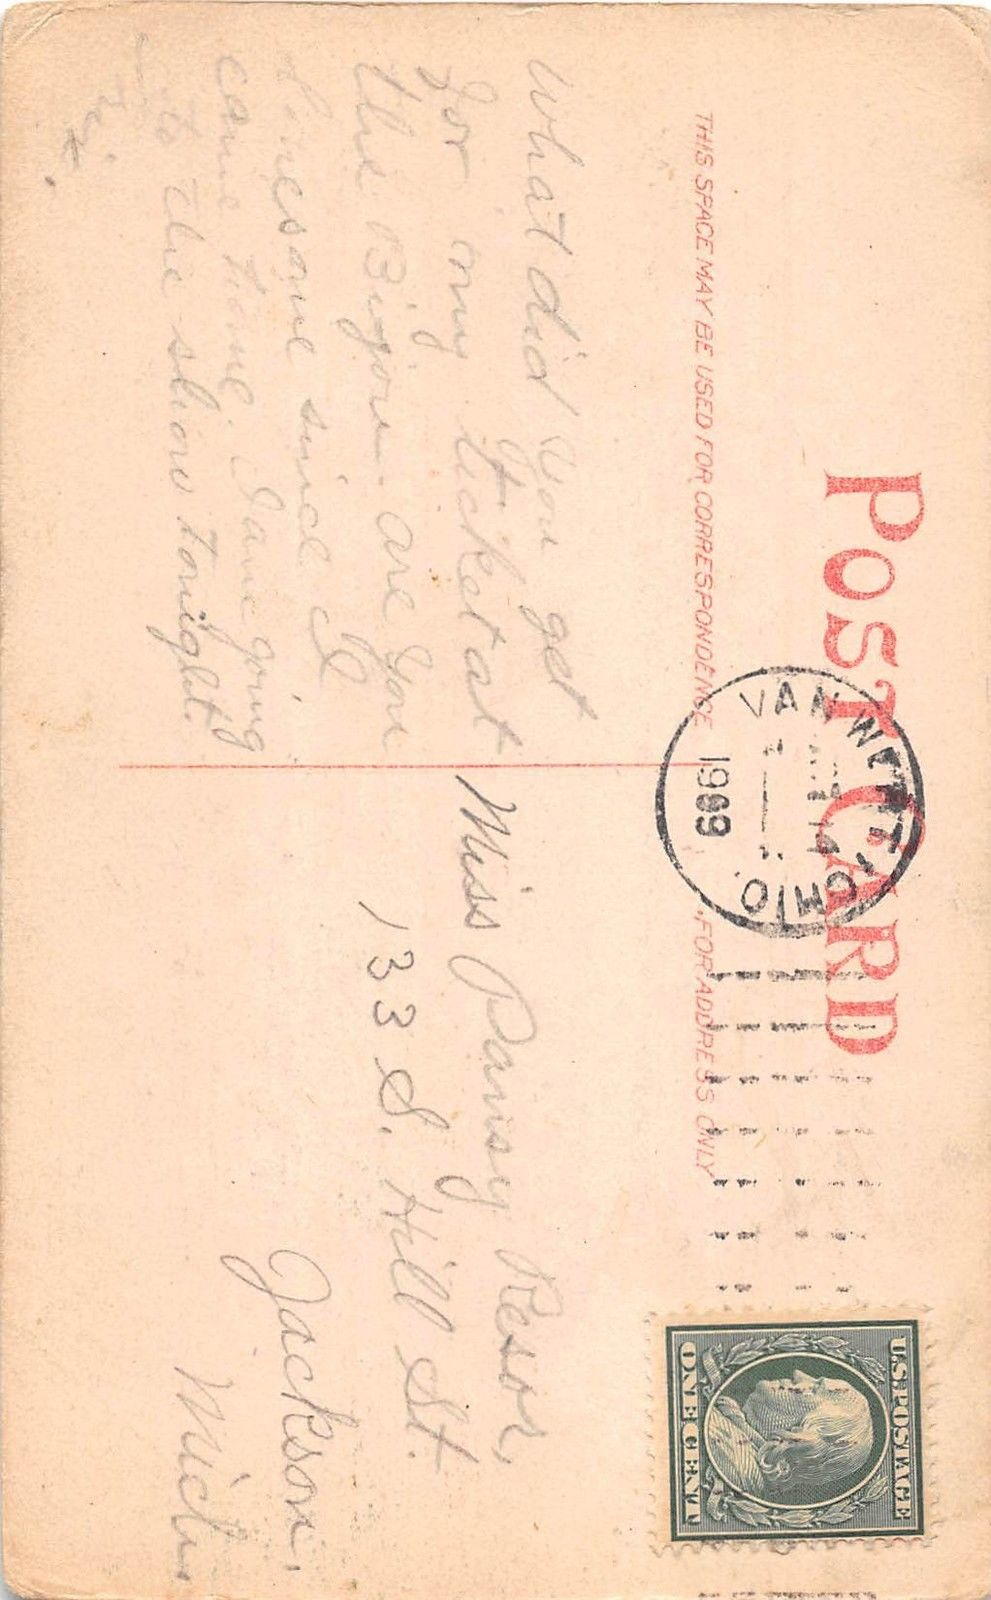 POST CARD
THIS SPACE MAY BE USED FOR CORRESPONDENCE
FOR ADDRESS ONLY
VAN WERT, OHIO.
1909
U.S. POSTAGE
ONE CENT
What did you get
for my ticket at
the Bijou. are you
lonesome since I
came home. I am going
to the show tonight.
Miss Pansy Resor,
133 S. Hill St.
Jackson,
Mich